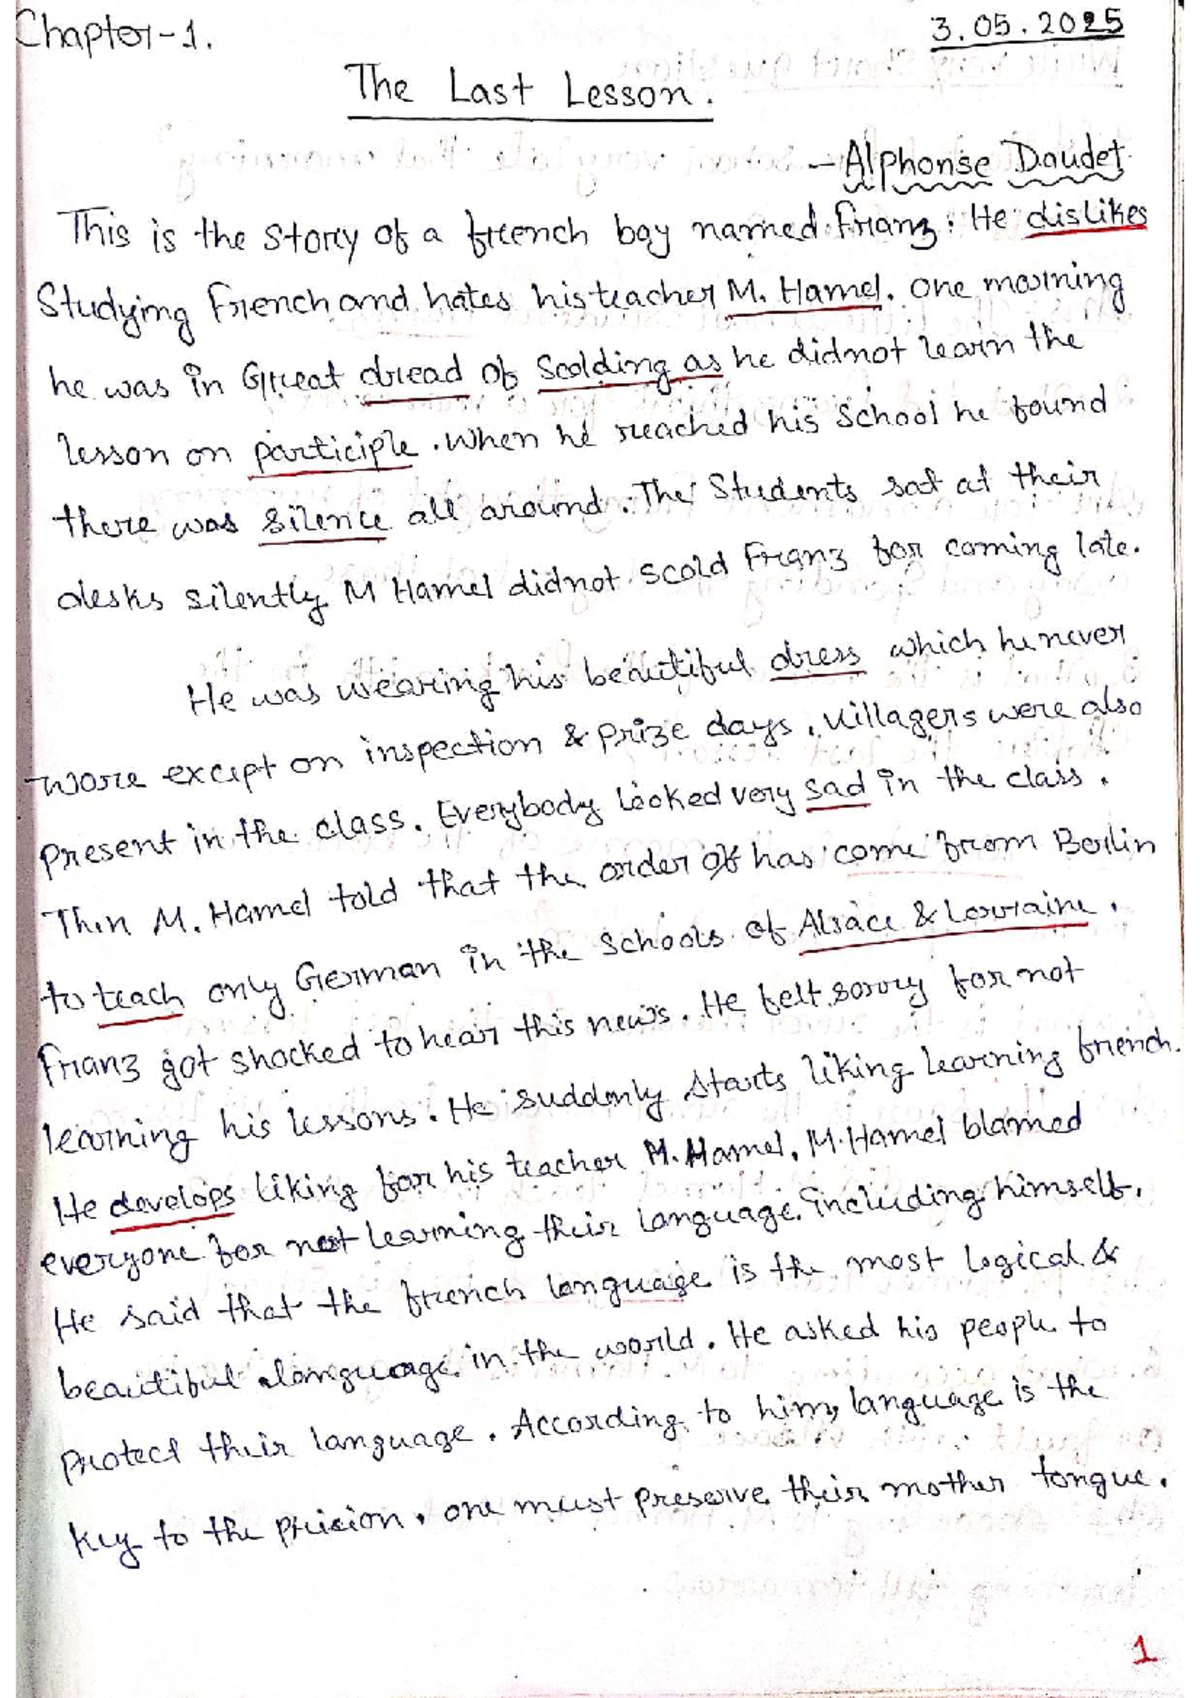 Chapter-1.
3.05.2025
The Last Lesson.
- Alphonse Daudet
This is the story of a french boy named Franz. He dislikes
Studying French and hates his teacher M. Hamel. One morning
he was in Great dread of Scolding as he didnot learn the
lesson on participle. When he reached his School he found
there was silence all around. The Students sat at their
desks silently M Hamel didnot scold Franz for coming late.
He was wearing his beautiful dress which he never
wore except on inspection & prize days. Villagers were also
present in the class. Everybody looked very sad in the class.
Then M. Hamel told that the order of has come from Berlin
to teach only German in the schools of Alsace & Lorraine.
Franz got shocked to hear this news. He felt sorry for not
learning his lessons. He suddenly starts liking learning french.
He develops liking for his teacher M. Hamel. M. Hamel blamed
everyone for not learning their language. including himself.
He said that the french language is the most logical &
beautiful language in the world. He asked his people to
protect their language. According to him, language is the
key to the prision. one must preserve their mother tongue.
1